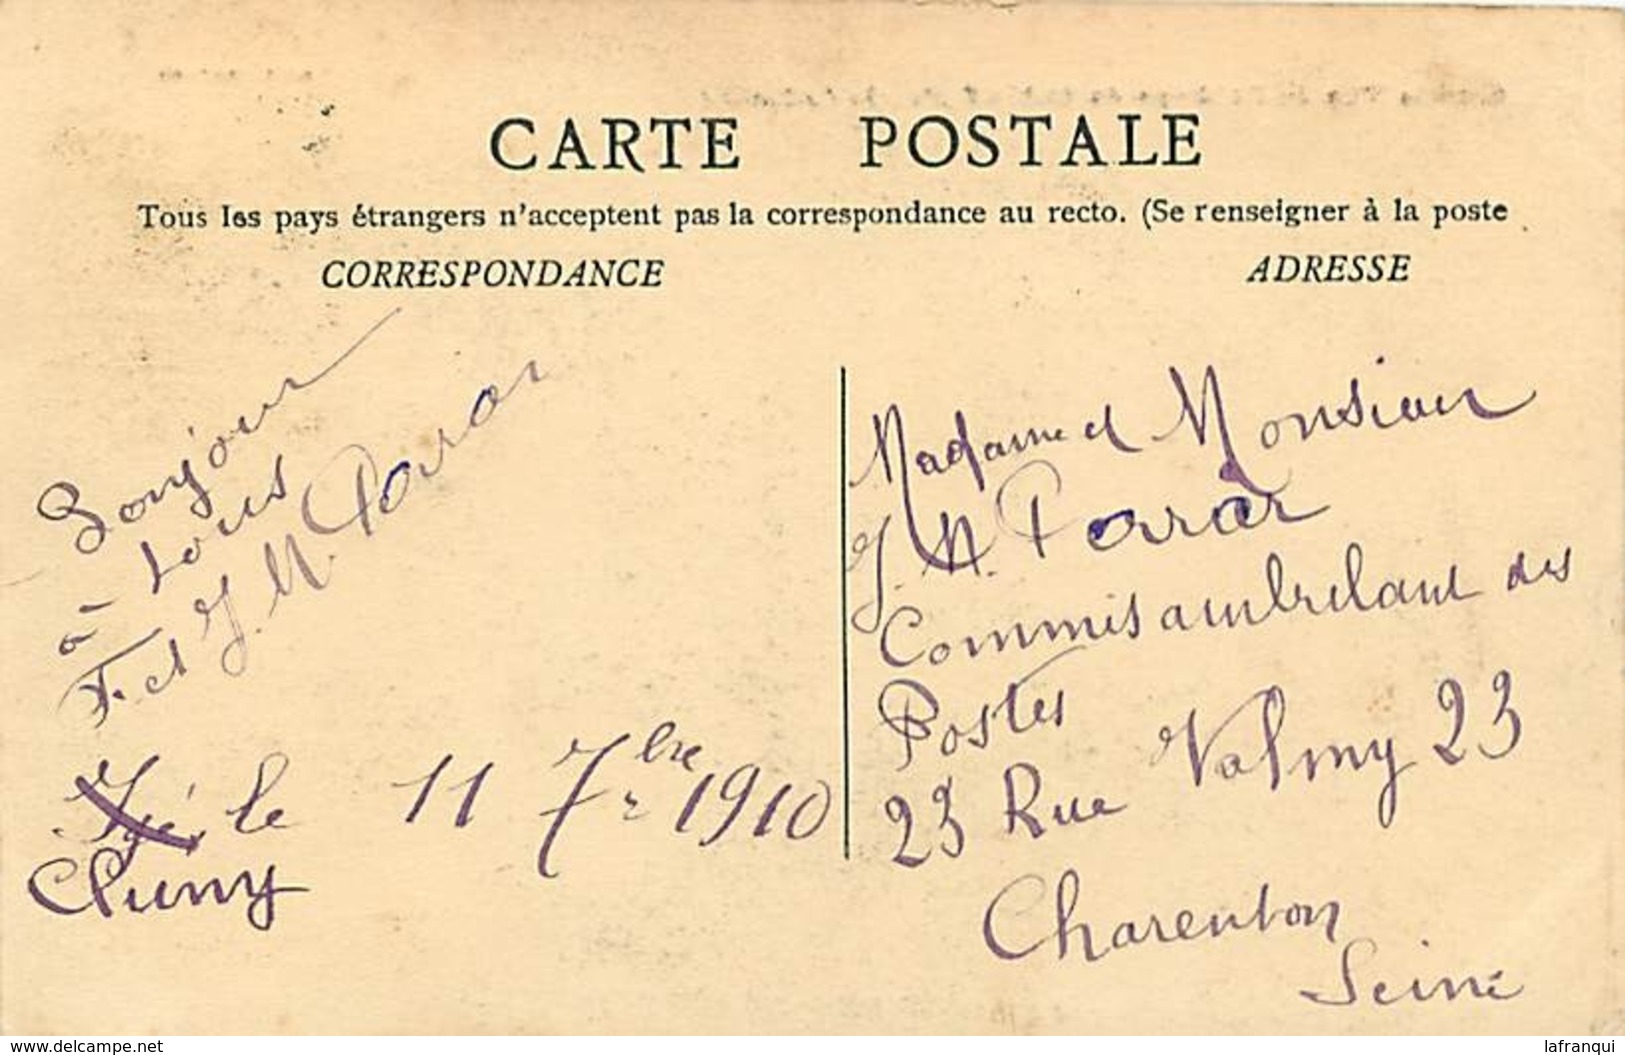 CARTE POSTALE
Tous les pays étrangers n'acceptent pas la correspondance au recto. (Se renseigner à la poste
CORRESPONDANCE
ADRESSE
Bonjour
à tous
F. et J. M. Perrar
Igé, le 11 7bre 1910
Cluny
Madame et Monsieur
J. M. Perrar
Commis ambulant des
Postes
23 Rue Valmy 23
Charenton
Seine
www.delcampe.net
lafranqui